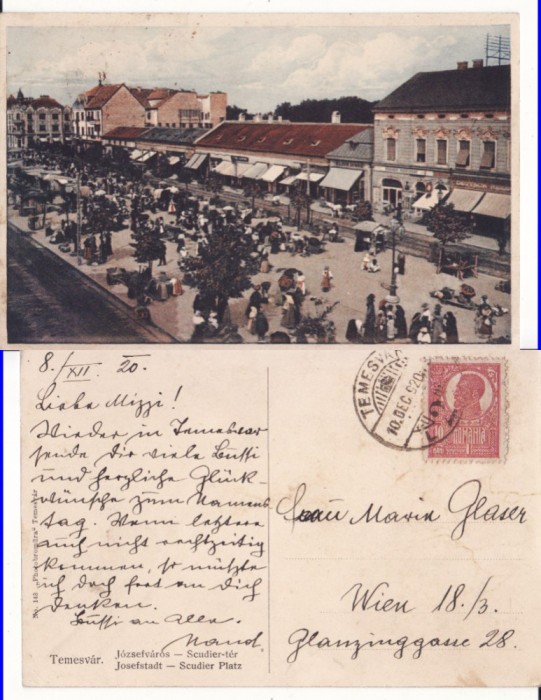 8./XII. 20.
Liebe Mizzi!
Wieder in Temesvar
sende Dir viele Bussi
und herzliche Glück-
wünsche zum Namens
tag. Wenn letztere
auch nicht rechtzeitig
kommen, so müsste
ich doch fest an Dich
denken.
Bussi an Alle.
Nand.
No. 143 "Phönixbromüra" Temesvár
Temesvár. Józsefváros — Scudier-tér
Josefstadt — Scudier Platz
TEMESVAR
10.DEC.920
10
ROMANIA
Frau Marie Glaser
Wien 18./3.
Glanzinggasse 28.